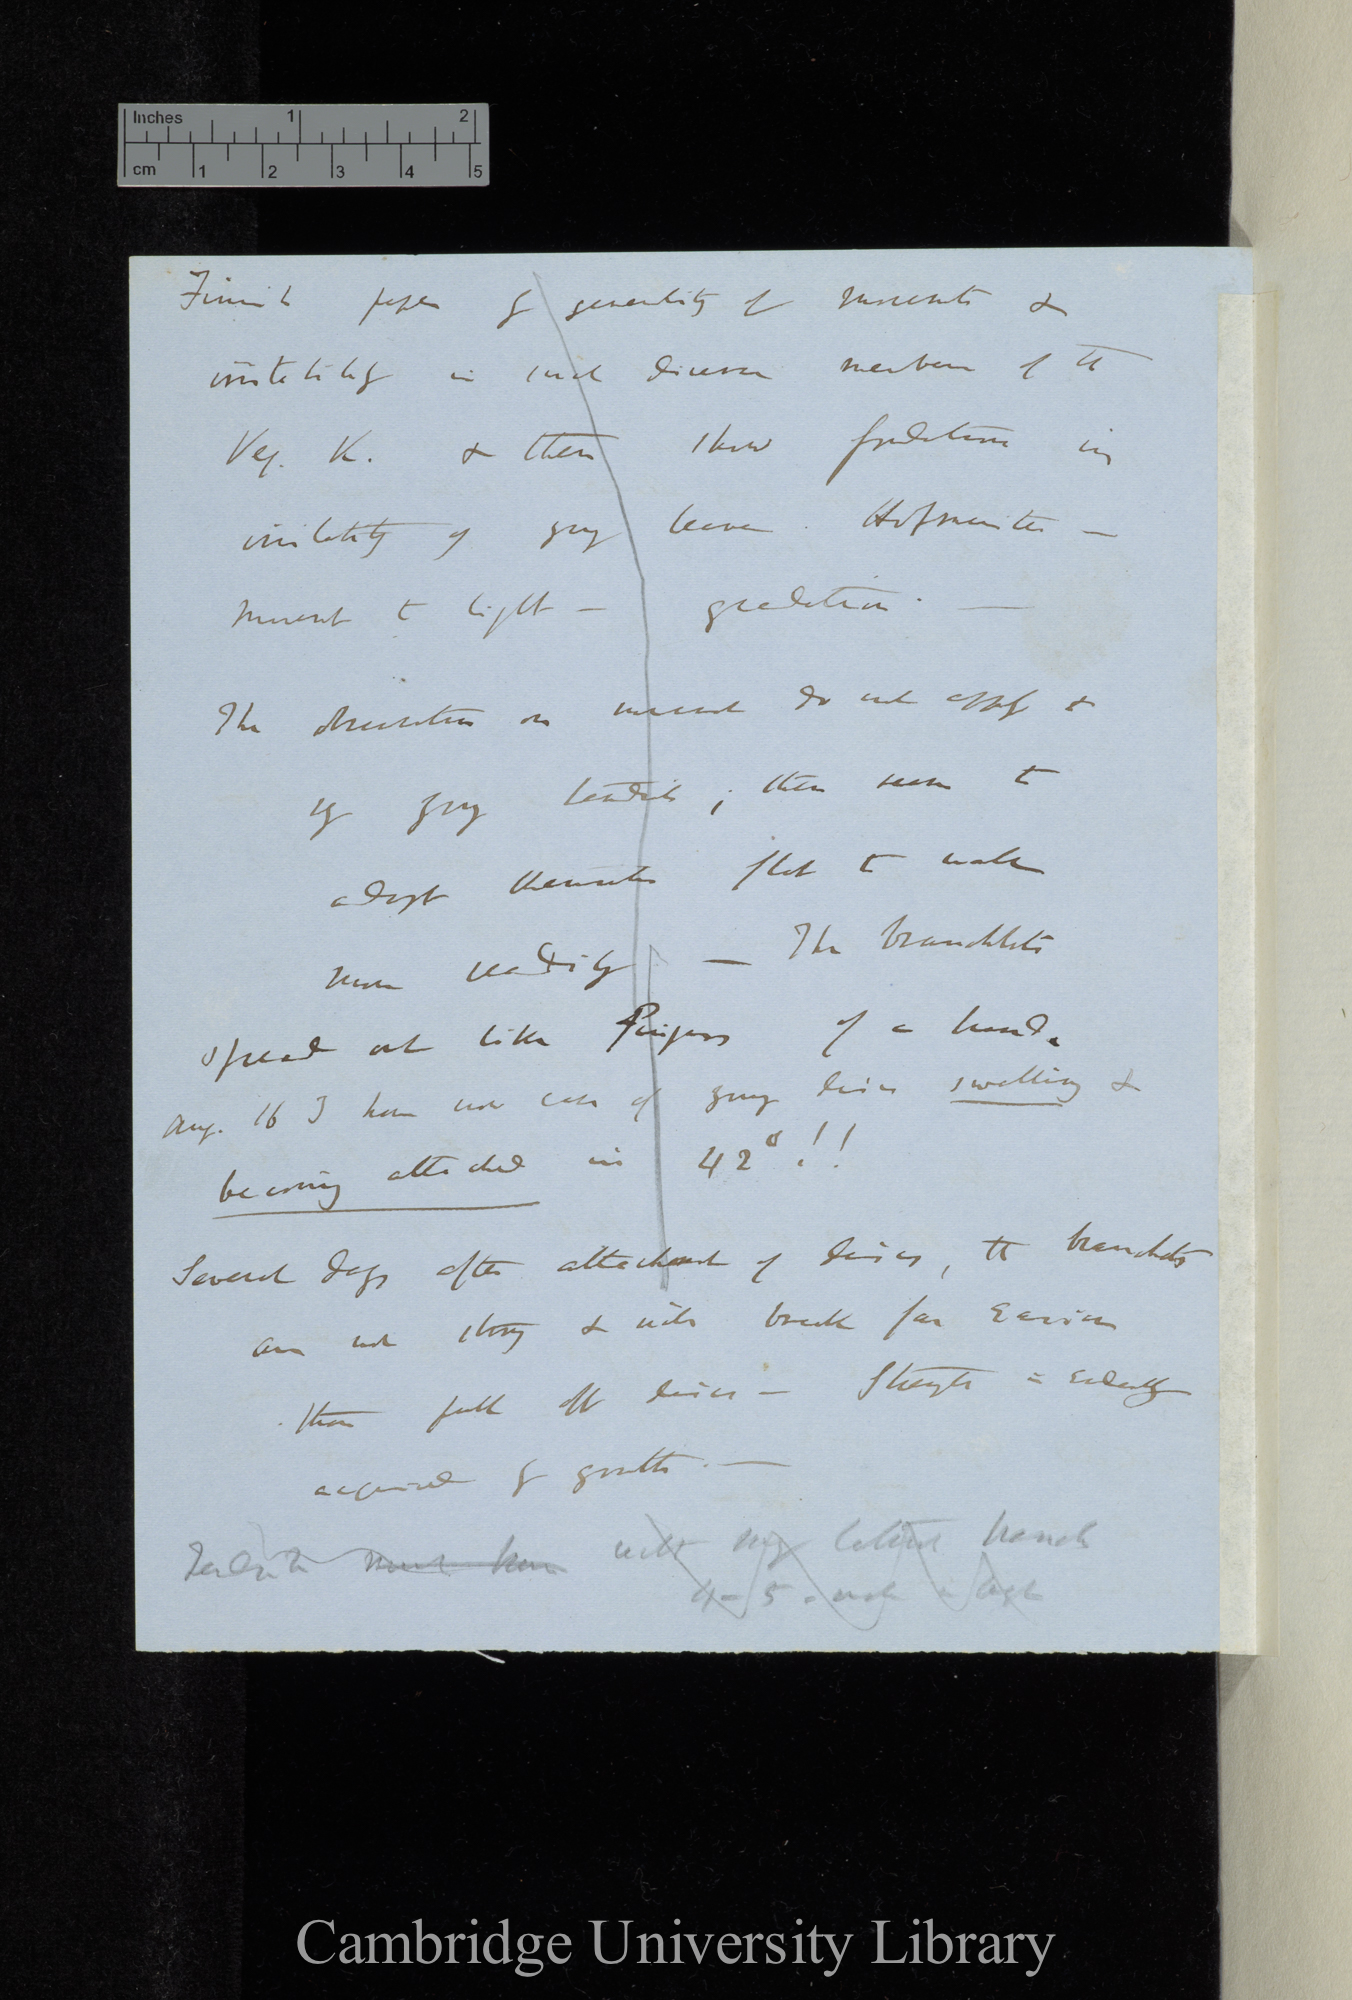 Inches 1 2
cm 1 2 3 4 5
Finish paper by generality of movements &
irritability in such diverse members of the
Veg. K. & then show gradations in
irritability of young leaves. Hofmeister —
movement to light — gradation. —
The observation on movement do not apply to
v. young tendrils; these seem to
adapt themselves flat to
more readily — The branchlets
spread out like fingers of a hand.
Aug. 16 I have now case of young discs swelling &
becoming attached in 42°!!
Several days after attachment of discs, the branchlets
are not strong & will break far easier
than pull off discs — Strength is evidently
acquired by growth. —
Tendrils must have with my lateral branch
4 - 5
Cambridge University Library